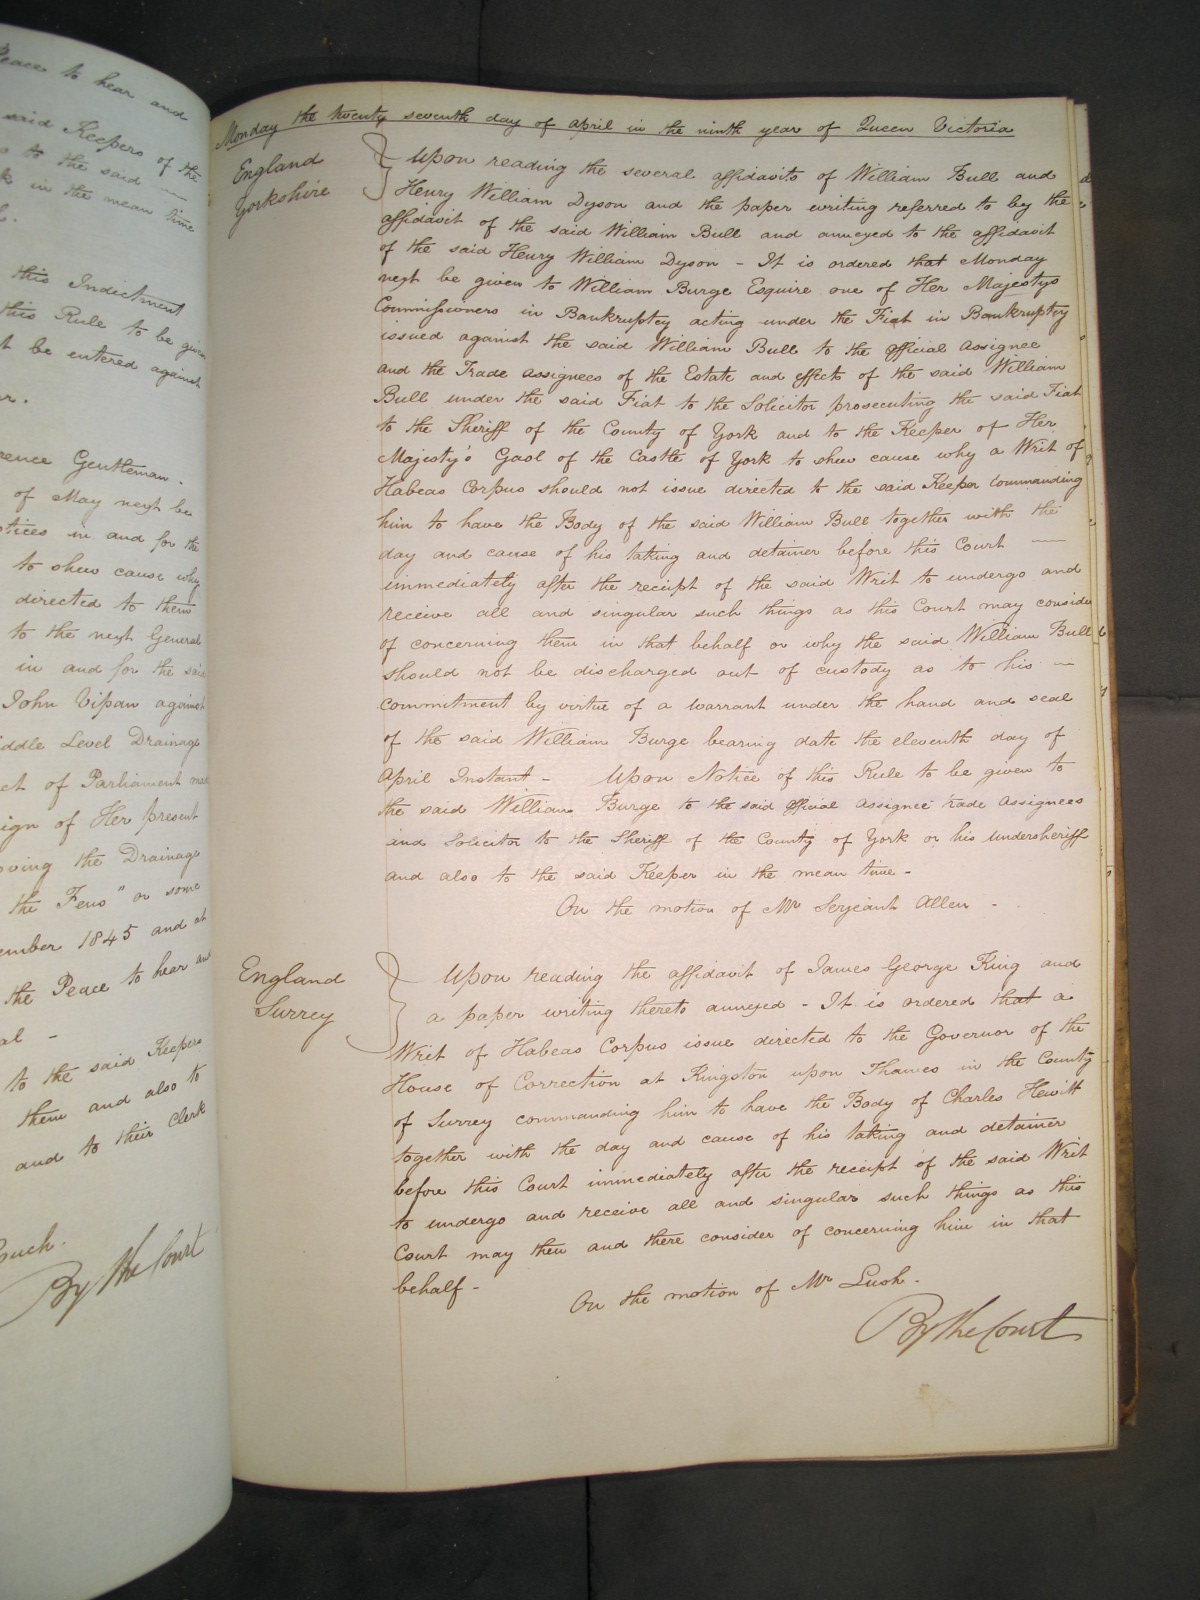 Peace to hear and
said Keepers of the
to the said
in the mean time
this Indictment
this Rule to be given
be entered against
Gentleman -
of May next be
in and for the
to shew cause why
directed to them
to the next General
in and for the said
John Vipan against
Middle Level Drainage
Act of Parliament made
reign of Her present
the Drainage
the Fens" or some
1845 and at
the Peace to hear and
to the said Keepers
them and also to
and to their Clerk
By the Court
Monday the twenty seventh day of April in the ninth year of Queen Victoria
England
Yorkshire
Upon reading the several affidavits of William Bull and
Henry William Dyson and the paper writing referred to by the
affidavit of the said William Bull and annexed to the affidavit
of the said Henry William Dyson - It is ordered that Monday
next be given to William Burge Esquire one of Her Majestys
Commissioners in Bankruptcy acting under the Fiat in Bankruptcy
issued against the said William Bull to the Official Assignee
and the Trade Assignees of the Estate and effects of the said William
Bull under the said Fiat to the Solicitor prosecuting the said Fiat
to the Sheriff of the County of York and to the Keeper of Her
Majesty's Gaol of the Castle of York to shew cause why a Writ of
Habeas Corpus should not issue directed to the said Keeper Commanding
him to have the Body of the said William Bull together with the
day and cause of his taking and detainer before this Court
immediately after the receipt of the said Writ to undergo and
receive all and singular such things as this Court may consider
of concerning them in that behalf or why the said William Bull
should not be discharged out of custody as to his
commitment by virtue of a Warrant under the hand and seal
of the said William Burge bearing date the eleventh day of
April Instant - Upon Notice of this Rule to be given to
the said William Burge to the said Official Assignee Trade Assignees
and Solicitor to the Sheriff of the County of York or his Undersheriff
and also to the said Keeper in the mean time -
On the motion of Mr Serjeant Allen -
England
Surrey
Upon reading the affidavit of James George King and
a paper writing thereto annexed - It is ordered that a
Writ of Habeas Corpus issue directed to the Governor of the
House of Correction at Kingston upon Thames in the County
of Surrey commanding him to have the Body of Charles Hewitt
together with the day and cause of his taking and detainer
before this Court immediately after the receipt of the said Writ
to undergo and receive all and singular such things as this
Court may then and there consider of concerning him in that
behalf -
On the motion of Mr Lush -
By the Court